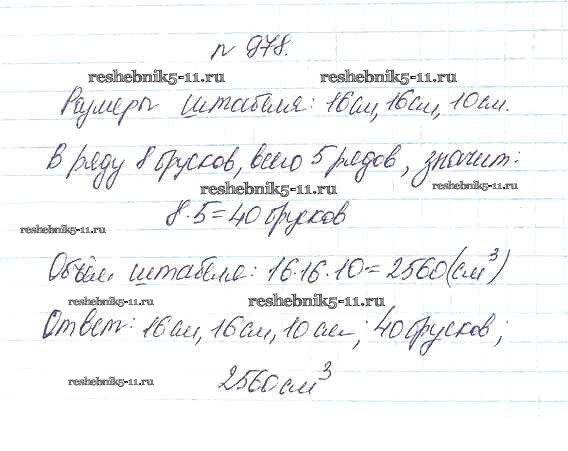 n 978.
reshebnik5-11.ru reshebnik5-11.ru
Размеры штабеля: 16см, 16см, 10см.
В ряду 8 брусков, всего 5 рядов, значит:
reshebnik5-11.ru reshebnik5-11.ru
8·5=40 брусков
reshebnik5-11.ru
Объём штабеля: 16·16·10=2560(см³)
reshebnik5-11.ru reshebnik5-11.ru
Ответ: 16см, 16см, 10см; 40 брусков;
reshebnik5-11.ru 2560см³